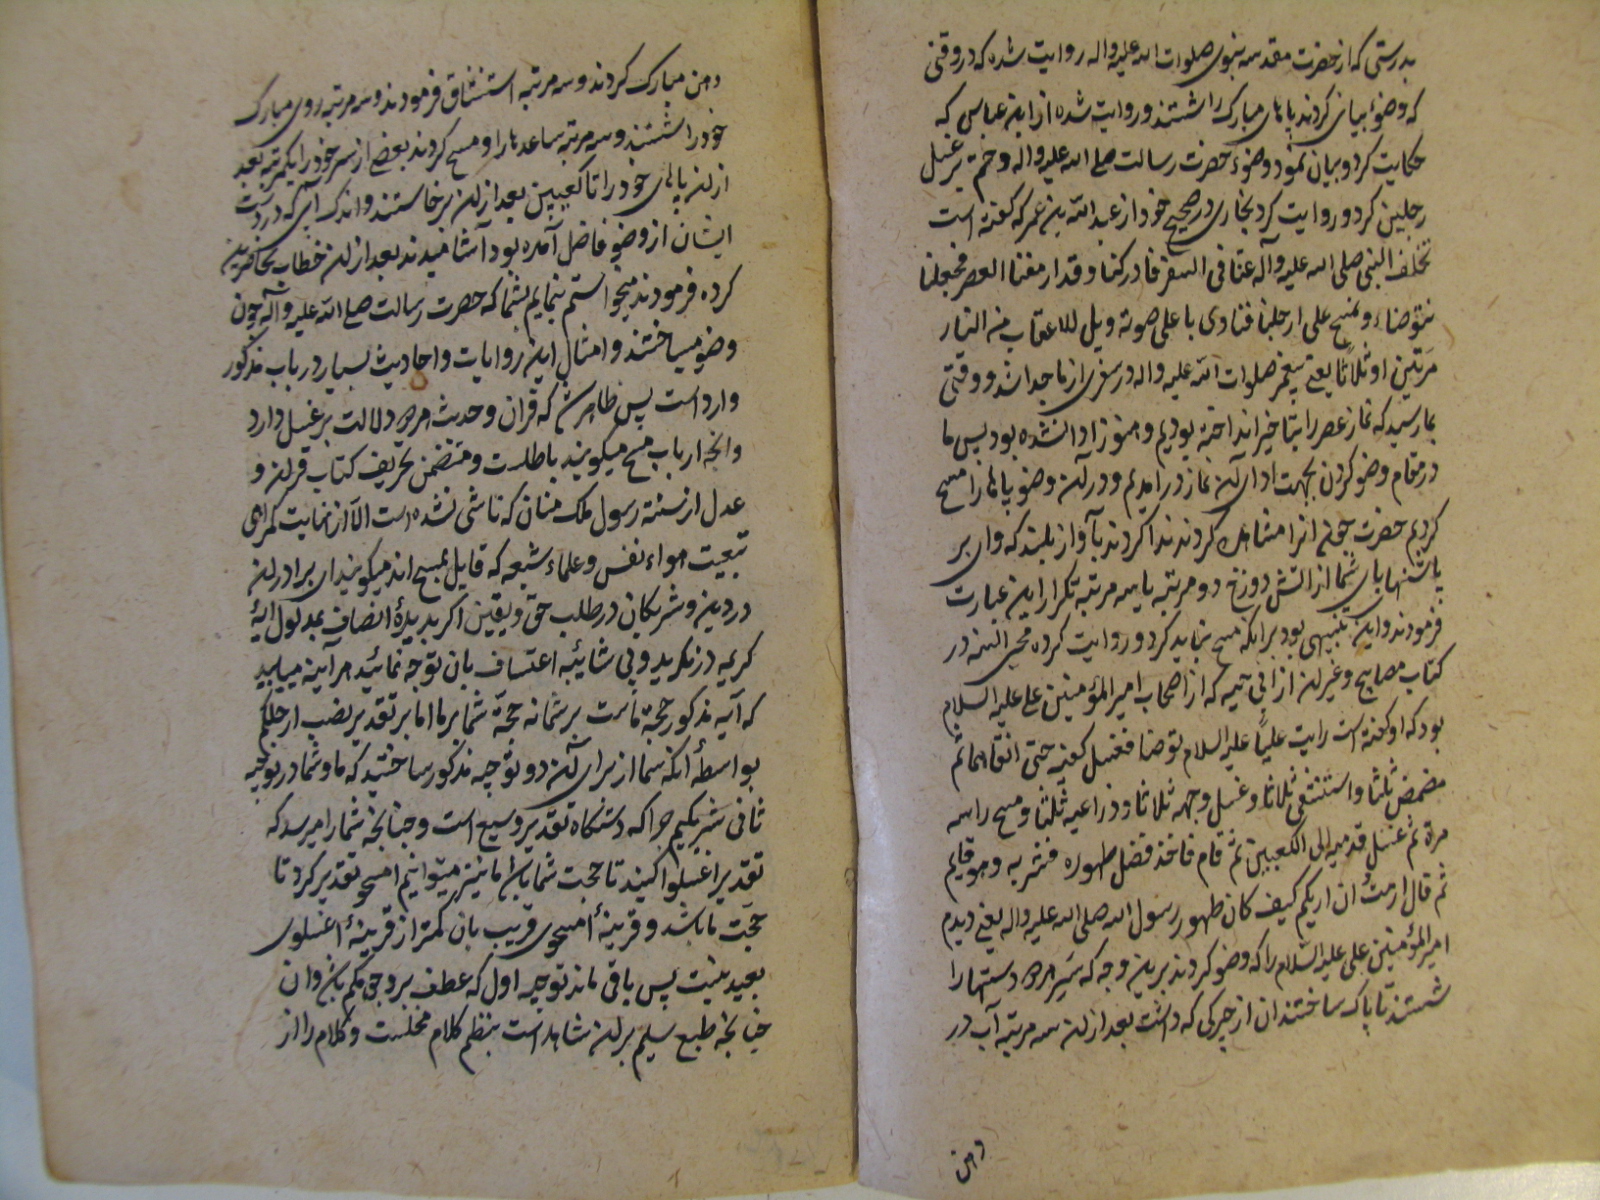 بدرستی که از حضرت مقدسه نبوی صلوات الله علیه واله روایت شده که در وقتی
که وضؤ بیان کردند پاهای مبارک را شستند و روایت شده از ابن عباس که
حکایت کرد و بیان نمود وضوء حضرت رسالت صلی الله علیه واله وختم بر غسل
رجلین کرد و روایت کرد بخاری در صحیح خود از عبد الله بن عمر که کفته است
تخلف النبی صلی الله علیه وآله عنا فی السفر فادرکنا وقد ارهقنا العصر فجعلنا
نتوضاء ونمسح علی ارجلنا فنادی باعلی صوته ویل للاعقاب من النار
مرتین او ثلاثا یعنی پیغمبر صلوات الله علیه واله در سفری از ما جدا شد و وقتی
بما رسید که نماز عصر را بتاخیر انداخته بودیم و هنوز ادا نشده بود پس ما
در مقام وضو کردن بجهت ادای آن نماز درامدیم و در آن وضو پاها را مسح
کردیم حضرت چون انرا مشاهده کردند ندا کردند بآواز بلند که وای بر
پاشنهای پای شما از اتش دوزخ دو مرتبه یا سه مرتبه تکرار این عبارت
فرمودند و این تنبیهی بود بر انکه مسح نباید کرد و روایت کرده محی السنه در
کتاب مصابیح وغیر آن از ابی حیه که از اصحاب امیر المؤمنین علی علیه السلام
بود که او کفته است رایت علیا علیه السلام توضا فغسل کفیه حتی انقاهما ثم
مضمض ثلثا واستنشق ثلاثا وغسل وجهه ثلاثا وذراعیه ثلثا ومسح راسه
مرة ثم غسل قدمیه الی الکعبین ثم قام فاخذ فضل طهوره فشربه وهو قایم
ثم قال اردت ان اریکم کیف کان طهور رسول الله صلی الله علیه واله یعنی دیدم
امیر المؤمنین علی علیه السلام را که وضو کردند برین وجه که سر هر دو دستها را
شستند تا پاک ساختند ان از چرکی که داشت بعد از ان سه مرتبه آب در
دهن
دهن مبارک کردند و سه مرتبه استنشاق فرمودند و سه مرتبه روی مبارک
خود را شستند و سه مرتبه ساعدها را و مسح کردند بعض از سر خود را یکمرتبه بعد
از ان پاهای خود را تا کعبین بعد از ان برخاستند و اندک آبی که در دست
ایشان از وضو فاضل آمده بود آشامیدند بعد از ان خطاب بحاضرین
کرده فرمودند میخواستم بنمایم بشما که حضرت رسالت صلی الله علیه وآله چون
وضو میساختند و امثال این روایات و احادیث بسیار در باب مذکور
وارد است پس ظاهر شد که قران و حدیث هر دو دلالت بر غسل دارد
وانچه ارباب مسح میکویند باطلست و متضمن تحریف کتاب قران و
عدل از سنة رسول ملک منان که ناشی نشده است الا از نهایت کمراهی
تبعیت هواء نفس وعلماء شیعه که قایل بمسح اند میکویند ای برادران
در دین و شریکان در طلب حق و یقین اکر بدیدۀ انصاف بمدلول ایۀ
کریمه درنکرید و بی شائبه اعتساف بان توجه نمائید هر آینه میابید
که آیه مذکور حجة ماست بر شما نه حجة شما بر ما اما بر تقدیر نصب ارجلکم
بواسطۀ انکه شما از برای آن دو توجیه مذکور ساختید که ما و شما در توجیه
ثانی شریکیم چرا که دستکاه تقدیر وسیع است و چنانچه شما را میرسد که
تقدیر اغسلوا کنید تا حجت شما باشد ما نیز میتوانیم امسحو تقدیر کرد تا
حجت ما باشد و قرینۀ امسحوی قریب بان کمتر از قرینۀ اغسلوی
بعید نیست پس باقی ماند توجیه اول که عطف بر وجوهکم باشد و ان
چنانچه طبع سلیم بر ان شاهد است بنظم کلام مخلست و کلام را از